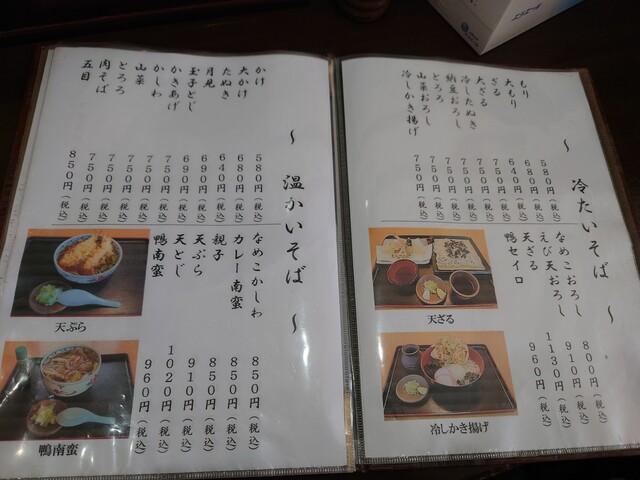 〜 冷たいそば 〜
もり 580円(税込)
大もり 680円(税込)
ざる 640円(税込)
大ざる 750円(税込)
冷したぬき 750円(税込)
納豆おろし 750円(税込)
とろろ 750円(税込)
山菜おろし 750円(税込)
冷しかき揚げ 750円(税込)
なめこおろし 800円(税込)
えび天おろし 910円(税込)
天ざる 1130円(税込)
鴨セイロ 960円(税込)
天ざる
冷しかき揚げ
〜 温かいそば 〜
かけ 580円(税込)
大かけ 680円(税込)
たぬき 640円(税込)
月見 690円(税込)
玉子とじ 690円(税込)
かきあげ 750円(税込)
かしわ 750円(税込)
山菜 750円(税込)
とろろ 750円(税込)
肉そば 750円(税込)
五目 850円(税込)
なめこかしわ 850円(税込)
カレー南蛮 850円(税込)
親子 850円(税込)
天ぷら 910円(税込)
天とじ 1020円(税込)
鴨南蛮 960円(税込)
天ぷら
鴨南蛮